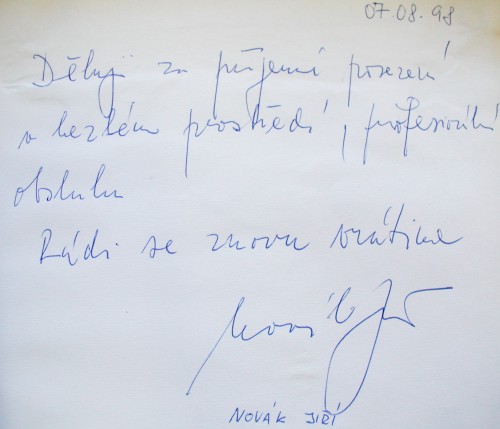 07.08.98
Děkuji za příjemné posezení
v hezkém prostředí, profesionální
obsluhu
Rádi se znovu vrátíme
Novák Jiří
NOVÁK JIŘÍ